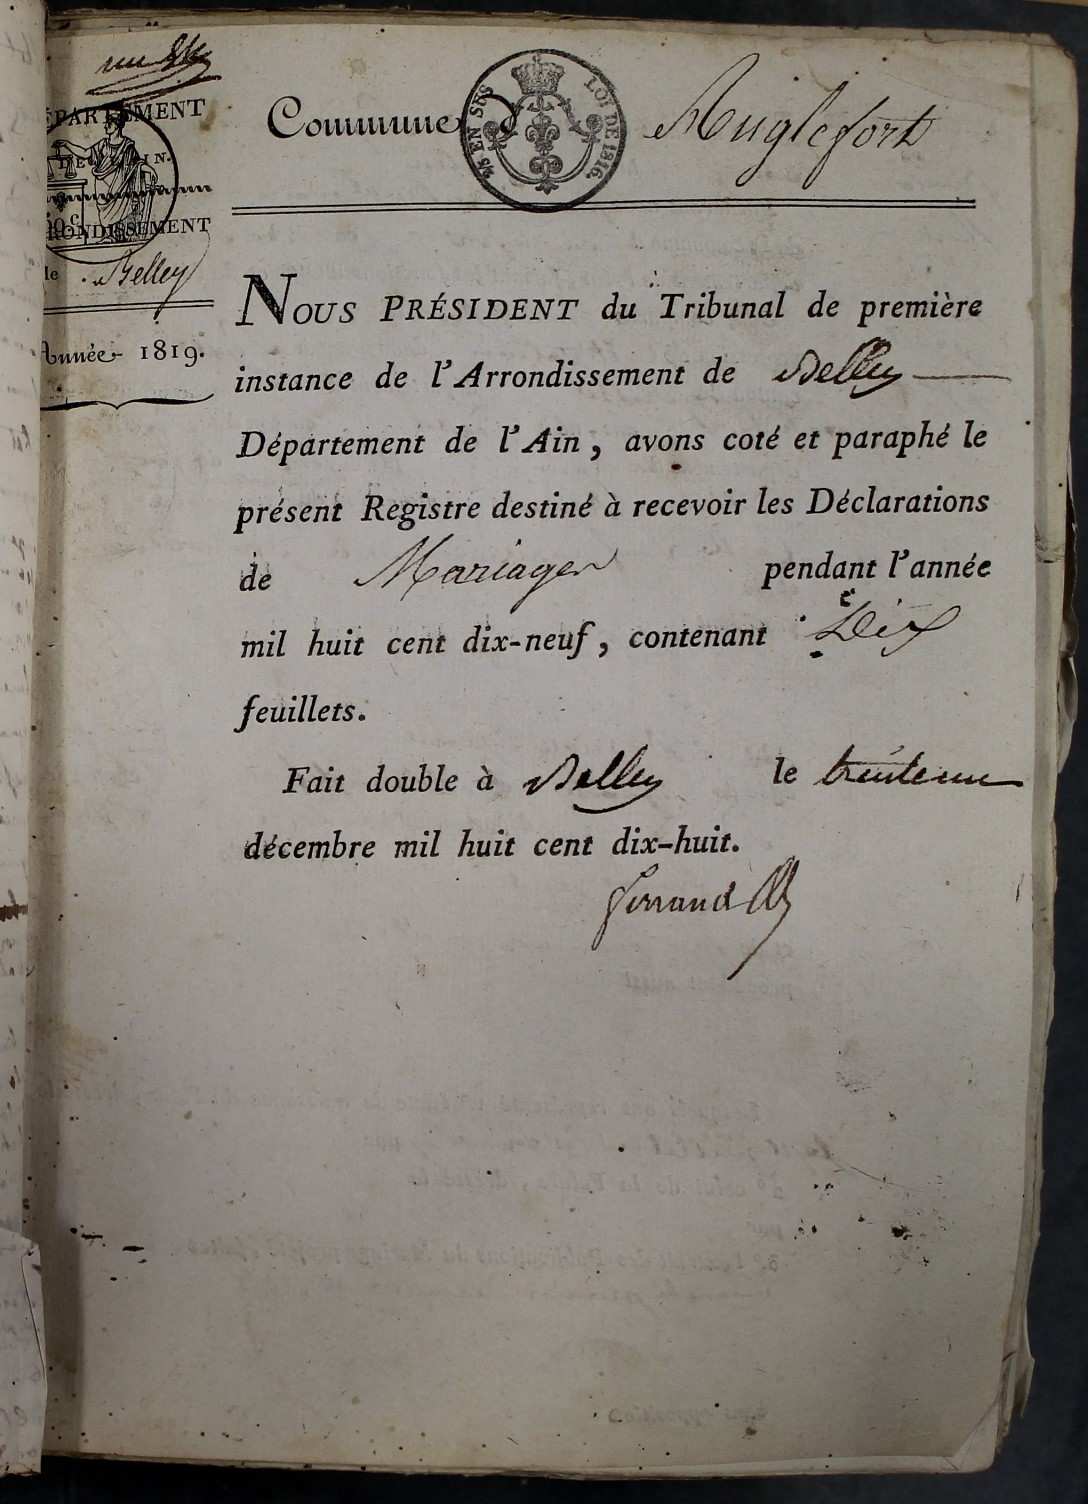 un
DÉPARTEMENT
DE L'AIN.
ARRONDISSEMENT
de Belley
Année 1819.
Commune d'Anglefort
2/5 EN SUS
LOI DE 1816.
NOUS PRÉSIDENT du Tribunal de première
instance de l'Arrondissement de Belley
Département de l'Ain, avons coté et paraphé le
présent Registre destiné à recevoir les Déclarations
de Mariages pendant l'année
mil huit cent dix-neuf, contenant Dix
feuillets.
Fait double à Belley le trente un
décembre mil huit cent dix-huit.
Ferrand